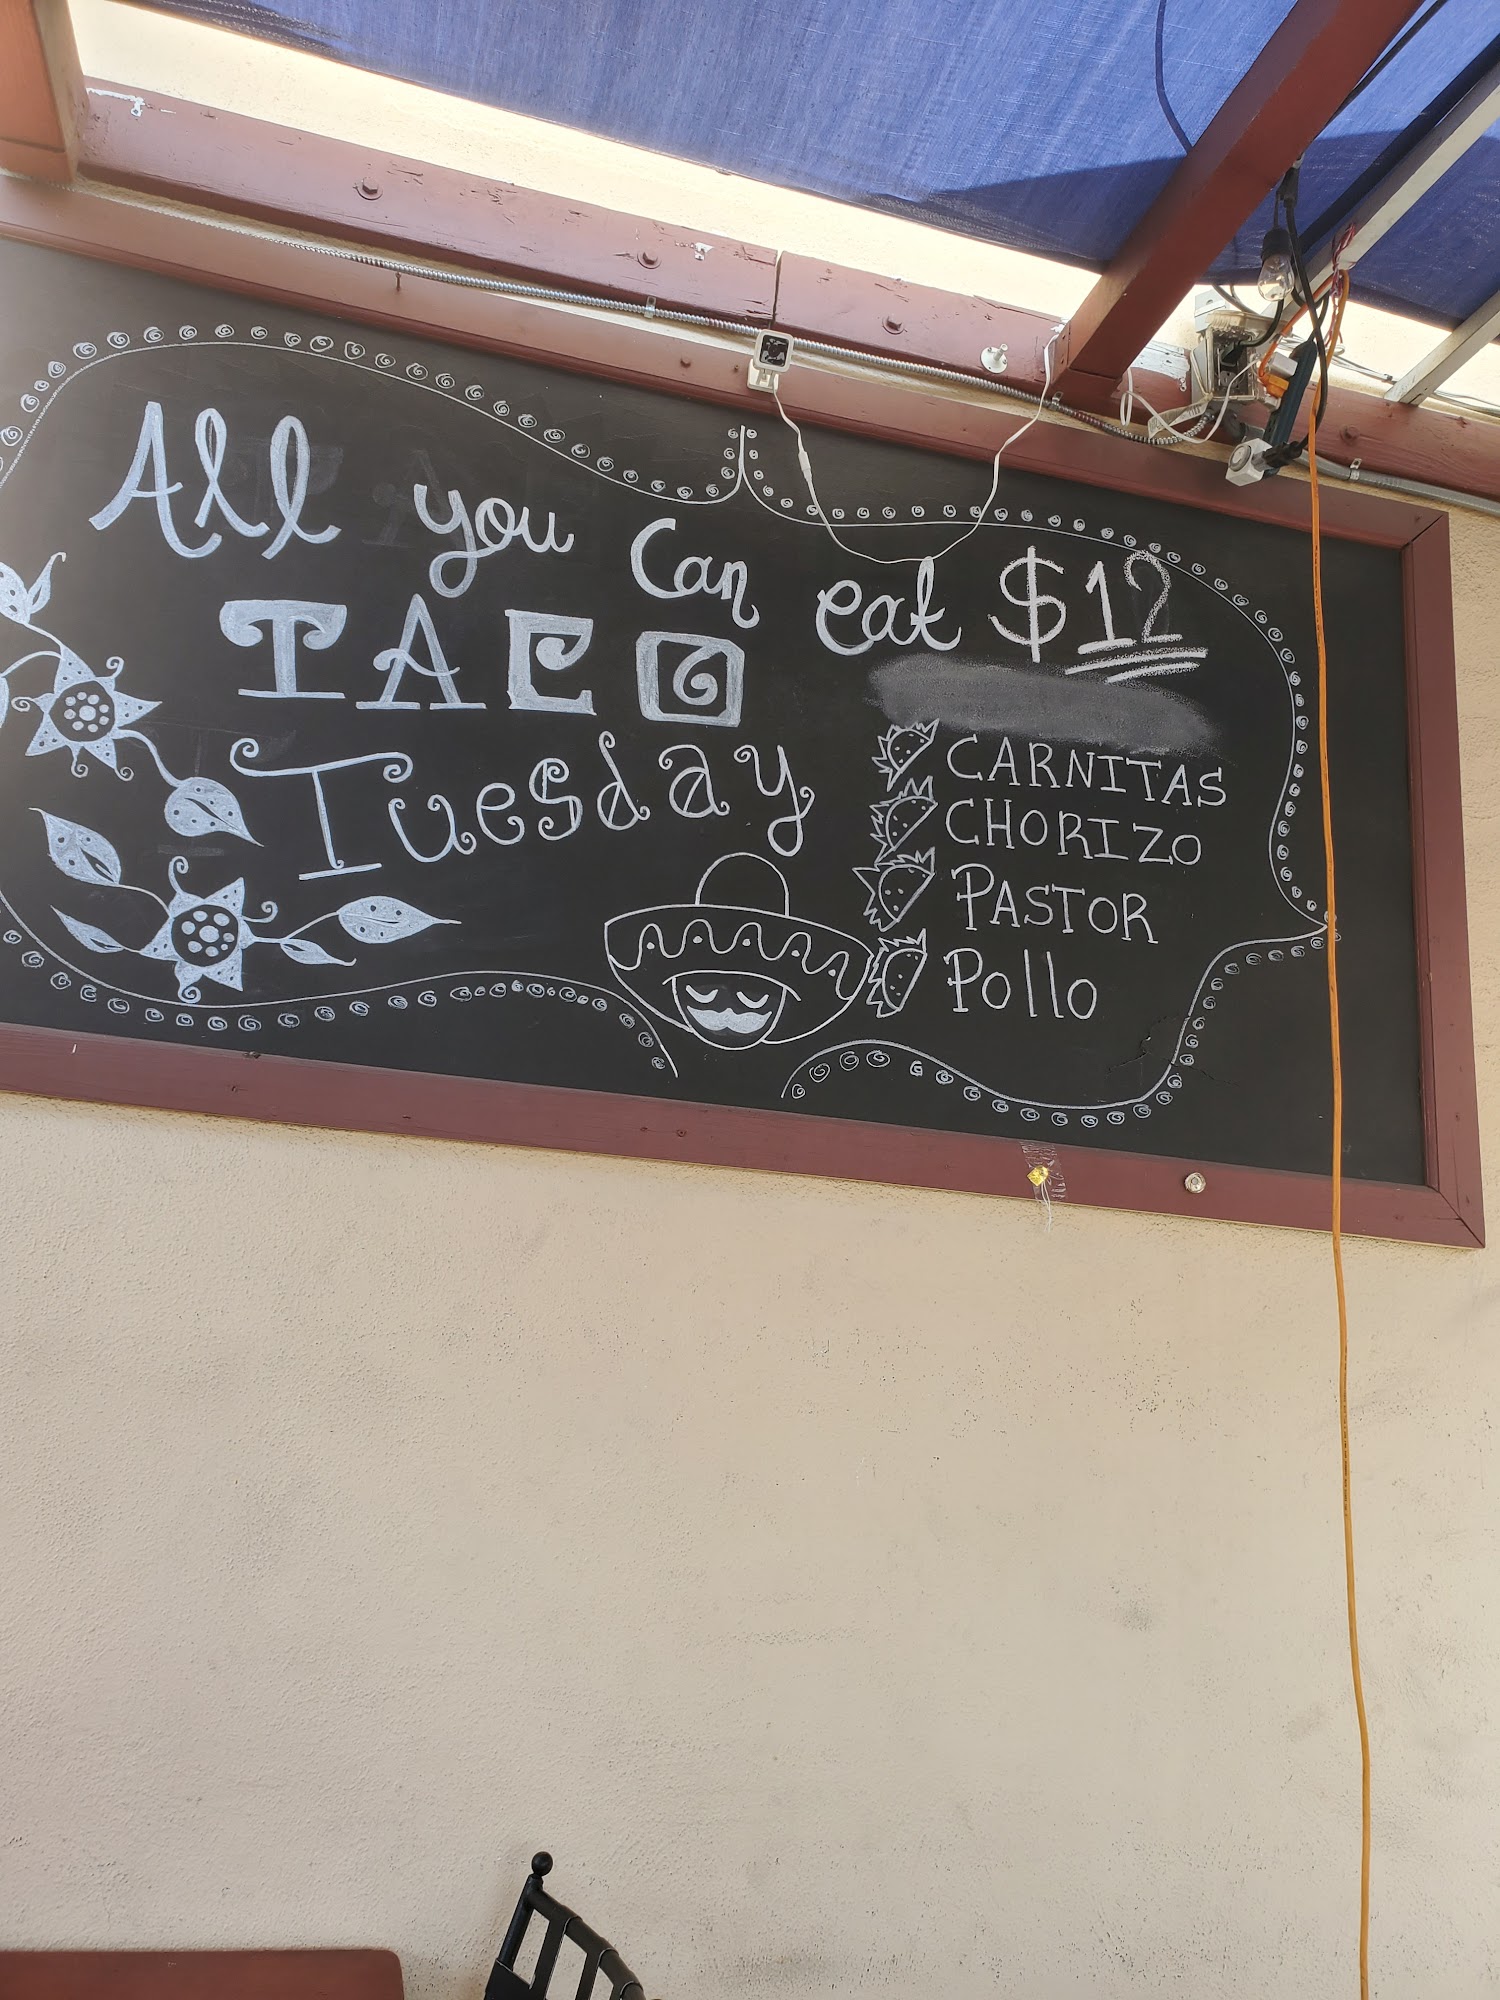 All you Can eat $12
TACO
Tuesday
CARNITAS
CHORIZO
PASTOR
Pollo